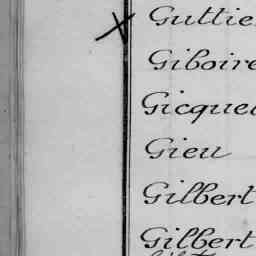 X Guttie
Giboire
Gicque
Gieu
Gilbert
Gilbert